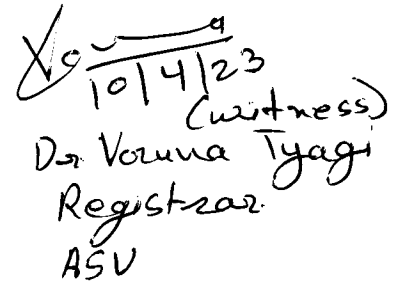 10/4/23
(witness)
Dr Varuna Tyagi
Registrar
ASU